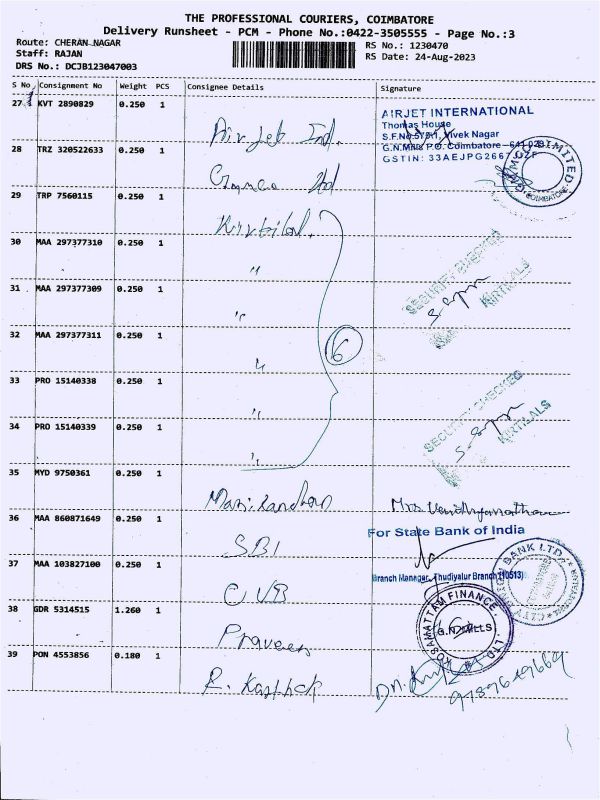 THE PROFESSIONAL COURIERS, COIMBATORE
Delivery Runsheet - PCM - Phone No.:0422-3505555 - Page No.:3
Route: CHERAN NAGAR
Staff: RAJAN
DRS No.: DCJB123047003
RS No.: 1230470
RS Date: 24-Aug-2023
S No Consignment No Weight PCS Consignee Details Signature
27 KVT 2890829 0.250 1
AIRJET INTERNATIONAL
Thomas House
S.F.No.578/1, Vivek Nagar
G.N.Mills P.O. Coimbatore - 641 029
GSTIN: 33AEJPG2667
28 TRZ 320522633 0.250 1
LIMITED
COIMBATORE
29 TRP 7560115 0.250 1
30 MAA 297377310 0.250 1 "
SECURITY CHECKED
KIRTILALS
31 MAA 297377309 0.250 1 "
32 MAA 297377311 0.250 1 "
6
33 PRO 15140338 0.250 1 "
SECURITY CHECKED
KIRTILALS
34 PRO 15140339 0.250 1 "
35 MYD 9750361 0.250 1 Manikandhan
36 MAA 860871649 0.250 1 SBI
For State Bank of India
Branch Manager, Thudiyalur Branch (10513)
37 MAA 103827100 0.250 1 CUB
BANK LTD.
38 GDR 5314515 1.260 1 Praveen
KOSAMATTAM FINANCE LTD.
G.N. MILLS
39 PON 4553856 0.180 1 R. Karthick